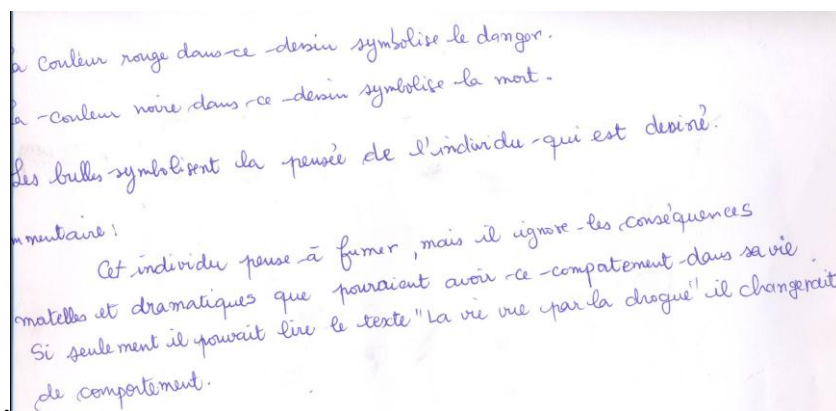 a couleur rouge dans ce dessin symbolise le danger.
a couleur noire dans ce dessin symbolise la mort.
Les bulles symbolisent la pensée de l'individu qui est dessiné.
mmentaire :
Cet individu pense à fumer, mais il ignore les conséquences
matelles et dramatiques que pouraient avoir ce compatement dans sa vie.
Si seulement il pouvait lire le texte "La vie vue par la drogue" il changerait
de comportement.